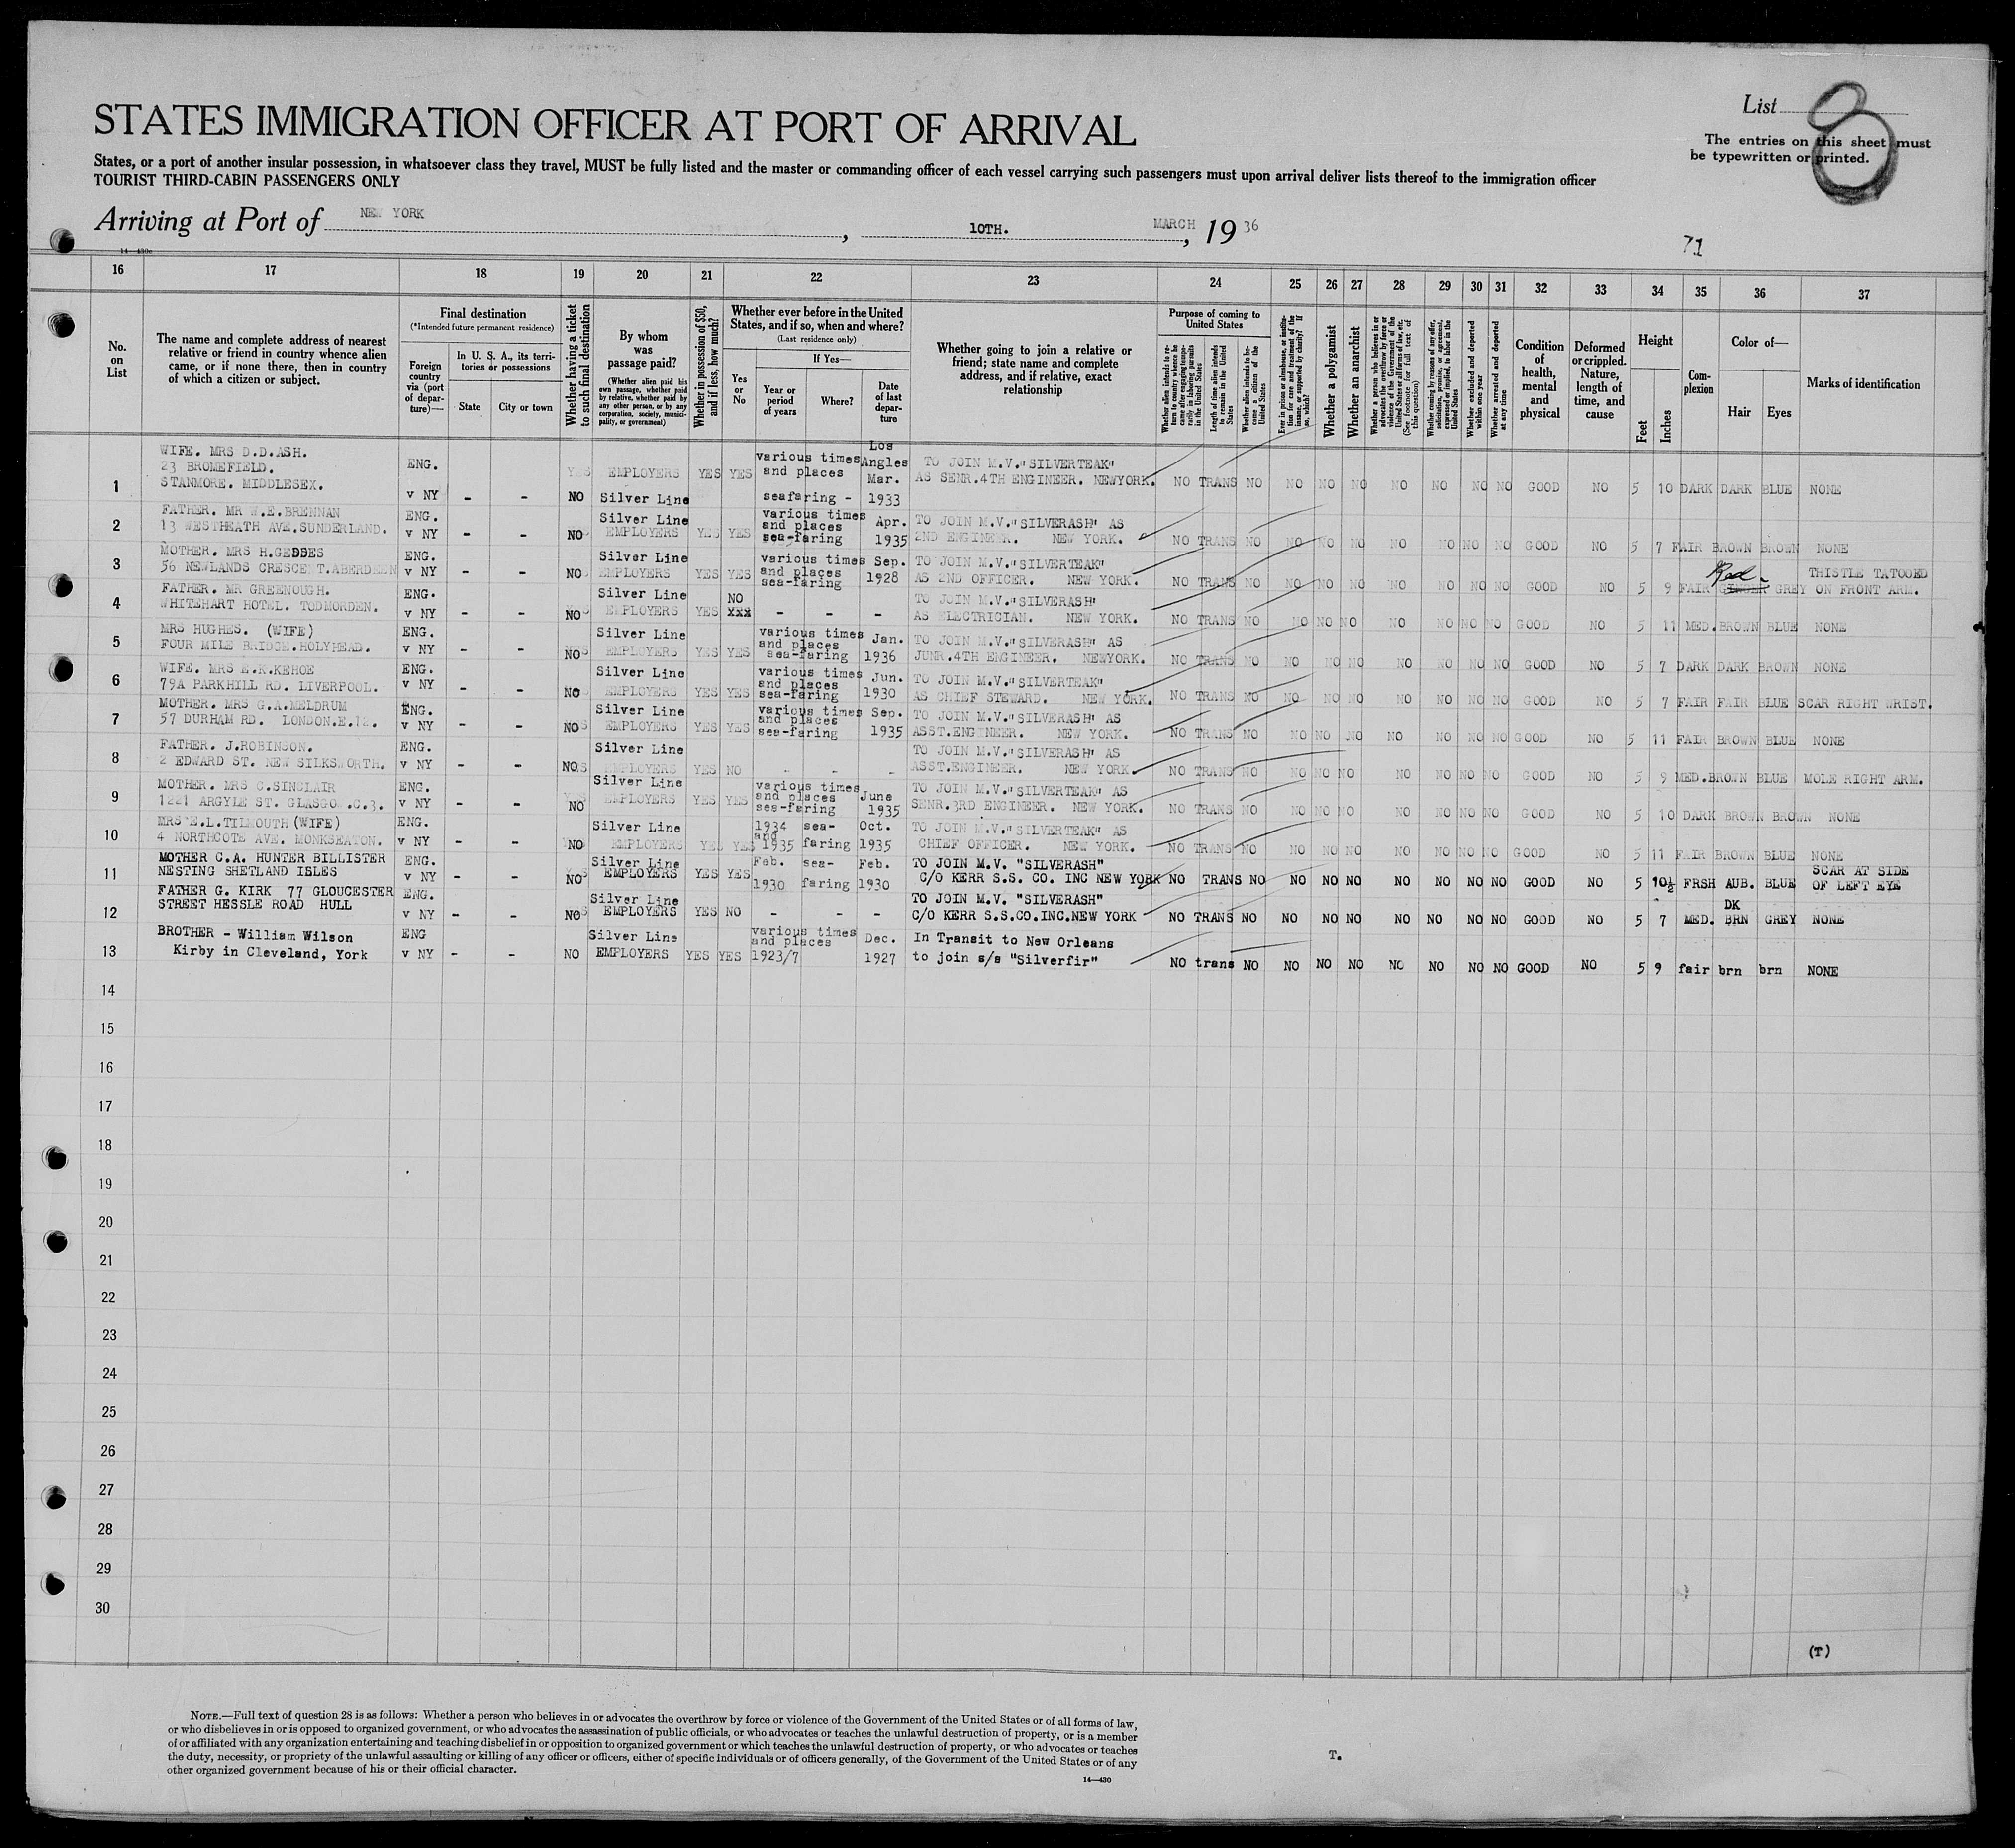 STATES IMMIGRATION OFFICER AT PORT OF ARRIVAL
List 8
The entries on this sheet must
be typewritten or printed.
States, or a port of another insular possession, in whatsoever class they travel, MUST be fully listed and the master or commanding officer of each vessel carrying such passengers must upon arrival deliver lists thereof to the immigration officer
TOURIST THIRD-CABIN PASSENGERS ONLY
Arriving at Port of NEW YORK, 10TH. MARCH, 19 36
71
14—430c
16 17 18 19 20 21 22 23 24 25 26 27 28 29 30 31 32 33 34 35 36 37
No. on List
The name and complete address of nearest relative or friend in country whence alien came, or if none there, then in country of which a citizen or subject.
Final destination
(*Intended future permanent residence)
Foreign country via (port of departure)—
In U. S. A., its territories or possessions
State
City or town
Whether having a ticket to such final destination
By whom was passage paid?
(Whether alien paid his own passage, whether paid by relative, whether paid by any other person, or by any corporation, society, municipality, or government)
Whether in possession of $50, and if less, how much?
Whether ever before in the United States, and if so, when and where?
(Last residence only)
If Yes—
Yes or No
Year or period of years
Where?
Date of last departure
Whether going to join a relative or friend; state name and complete address, and if relative, exact relationship
Purpose of coming to United States
Whether alien intends to return to country whence he came after engaging temporarily in laboring pursuits in the United States
Length of time alien intends to remain in the United States
Whether alien intends to become a citizen of the United States
Ever in prison or almshouse, or institution for care and treatment of the insane, or supported by charity? If so, which?
Whether a polygamist
Whether an anarchist
Whether a person who believes in or advocates the overthrow by force or violence of the Government of the United States or all forms of law, etc. (See footnote for full text of this question)
Whether coming by reasons of any offer, solicitation, promise, or agreement, expressed or implied, to labor in the United States
Whether excluded and deported within one year
Whether arrested and deported at any time
Condition of health, mental and physical
Deformed or crippled. Nature, length of time, and cause
Height
Feet
Inches
Complexion
Color of—
Hair
Eyes
Marks of identification
1 WIFE. MRS D.D.ASH. 23 BROMEFIELD. STANMORE. MIDDLESEX. ENG. v NY - - NO EMPLOYERS Silver Line YES YES various times and places seafaring - Los Angles Mar. 1933 TO JOIN M.V."SILVERTEAK" AS SENR.4TH ENGINEER. NEWYORK. NO TRANS NO NO NO NO NO NO NO NO GOOD NO 5 10 DARK DARK BLUE NONE
2 FATHER. MR W.E.BRENNAN 13 WESTHEATH AVE.SUNDERLAND. ENG. v NY - - NO Silver Line EMPLOYERS YES YES various times and places sea-faring Apr. 1935 TO JOIN M.V."SILVERASH" AS 2ND ENGINEER. NEW YORK. NO TRANS NO NO NO NO NO NO NO NO GOOD NO 5 7 FAIR BROWN BROWN NONE
3 MOTHER. MRS H.GEDDES 56 NEWLANDS CRESCENT.ABERDEEN ENG. v NY - - NO Silver Line EMPLOYERS YES YES various times and places sea-faring Sep. 1928 TO JOIN M.V."SILVERTEAK" AS 2ND OFFICER. NEW YORK. NO TRANS NO NO NO NO NO NO NO NO GOOD NO 5 9 FAIR GINGER Red GREY THISTLE TATOOED ON FRONT ARM.
4 FATHER. MR GREENOUGH. WHITEHART HOTEL. TODMORDEN. ENG. v NY - - NO Silver Line EMPLOYERS YES NO xxx - - - TO JOIN M.V."SILVERASH" AS ELECTRICIAN. NEW YORK. NO TRANS NO NO NO NO NO NO NO NO GOOD NO 5 11 MED. BROWN BLUE NONE
5 MRS HUGHES. (WIFE) FOUR MILE BRIDGE.HOLYHEAD. ENG. v NY - - NO Silver Line EMPLOYERS YES YES various times and places sea-faring Jan. 1936 TO JOIN M.V."SILVERASH" AS JUNR.4TH ENGINEER. NEWYORK. NO TRANS NO NO NO NO NO NO NO NO GOOD NO 5 7 DARK DARK BROWN NONE
6 WIFE. MRS E.K.KEHOE 79A PARKHILL RD. LIVERPOOL. ENG. v NY - - NO Silver Line EMPLOYERS YES YES various times and places sea-faring Jun. 1930 TO JOIN M.V."SILVERTEAK" AS CHIEF STEWARD. NEW YORK. NO TRANS NO NO NO NO NO NO NO NO GOOD NO 5 7 FAIR FAIR BLUE SCAR RIGHT WRIST.
7 MOTHER. MRS G.A.MELDRUM 57 DURHAM RD. LONDON.E.12. ENG. v NY - - NO Silver Line EMPLOYERS YES YES various times and places sea-faring Sep. 1935 TO JOIN M.V."SILVERASH" AS ASST.ENGINEER. NEW YORK. NO TRANS NO NO NO NO NO NO NO NO GOOD NO 5 11 FAIR BROWN BLUE NONE
8 FATHER. J.ROBINSON. 2 EDWARD ST. NEW SILKSWORTH. ENG. v NY - - NO Silver Line EMPLOYERS YES NO - - - TO JOIN M.V."SILVERASH" AS ASST.ENGINEER. NEW YORK NO TRANS NO NO NO NO NO NO NO NO GOOD NO 5 9 MED. BROWN BLUE MOLE RIGHT ARM.
9 MOTHER. MRS C.SINCLAIR 1221 ARGYLE ST. GLASGOW.C.3. ENG. v NY - - NO Silver Line EMPLOYERS YES YES various times and places sea-faring June 1935 TO JOIN M.V."SILVERTEAK" AS SENR.3RD ENGINEER. NEW YORK. NO TRANS NO NO NO NO NO NO NO NO GOOD NO 5 10 DARK BROWN BROWN NONE
10 MRS E.L.TILMOUTH (WIFE) 4 NORTHCOTE AVE. MONKSEATON. ENG. v NY - - NO Silver Line EMPLOYERS YES YES 1934 and 1935 sea-faring Oct. 1935 TO JOIN M.V."SILVERTEAK" AS CHIEF OFFICER. NEW YORK. NO TRANS NO NO NO NO NO NO NO NO GOOD NO 5 11 FAIR BROWN BLUE NONE
11 MOTHER C.A. HUNTER BILLISTER NESTING SHETLAND ISLES ENG. v NY - - NO Silver Line EMPLOYERS YES YES Feb. 1930 sea-faring Feb. 1930 TO JOIN M.V. "SILVERASH" C/O KERR S.S. CO. INC NEW YORK NO TRANS NO NO NO NO NO NO NO NO GOOD NO 5 10½ FRSH AUB. BLUE SCAR AT SIDE OF LEFT EYE
12 FATHER G. KIRK 77 GLOUCESTER STREET HESSLE ROAD HULL ENG. v NY - - NO Silver Line EMPLOYERS YES NO - - - TO JOIN M.V. "SILVERASH" C/O KERR S.S.CO.INC.NEW YORK NO TRANS NO NO NO NO NO NO NO NO GOOD NO 5 7 MED. DK BRN GREY NONE
13 BROTHER - William Wilson Kirby in Cleveland, York ENG v NY - - NO Silver Line EMPLOYERS YES YES various times and places 1923/7 Dec. 1927 In Transit to New Orleans to join s/s "Silverfir" NO trans NO NO NO NO NO NO NO NO GOOD NO 5 9 fair brn brn NONE
14
15
16
17
18
19
20
21
22
23
24
25
26
27
28
29
30
(T)
NOTE.—Full text of question 28 is as follows: Whether a person who believes in or advocates the overthrow by force or violence of the Government of the United States or of all forms of law,
or who disbelieves in or is opposed to organized government, or who advocates the assassination of public officials, or who advocates or teaches the unlawful destruction of property, or is a member
of or affiliated with any organization entertaining and teaching disbelief in or opposition to organized government or which teaches the unlawful destruction of property, or who advocates or teaches
the duty, necessity, or propriety of the unlawful assaulting or killing of any officer or officers, either of specific individuals or of officers generally, of the Government of the United States or of any
other organized government because of his or their official character.
14—430
T.